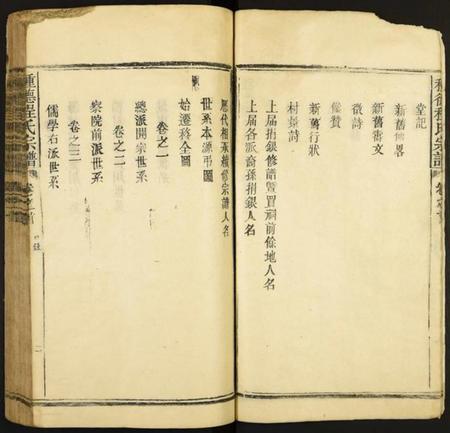 堂記
新舊傳畧
新舊霄文
徵詩
像贊
新舊行狀
村景詩
上屆捐銀修譜暨買祠前餘地人名
上屆各派裔孫捐銀人名
歷代相承續修宗譜人名
世系本源弔圖
始遷科全圖
卷之一
總派開宗世系
卷之二
察院前派世系
卷之三
儒學右派世系
種德程氏宗譜
卷之首
二